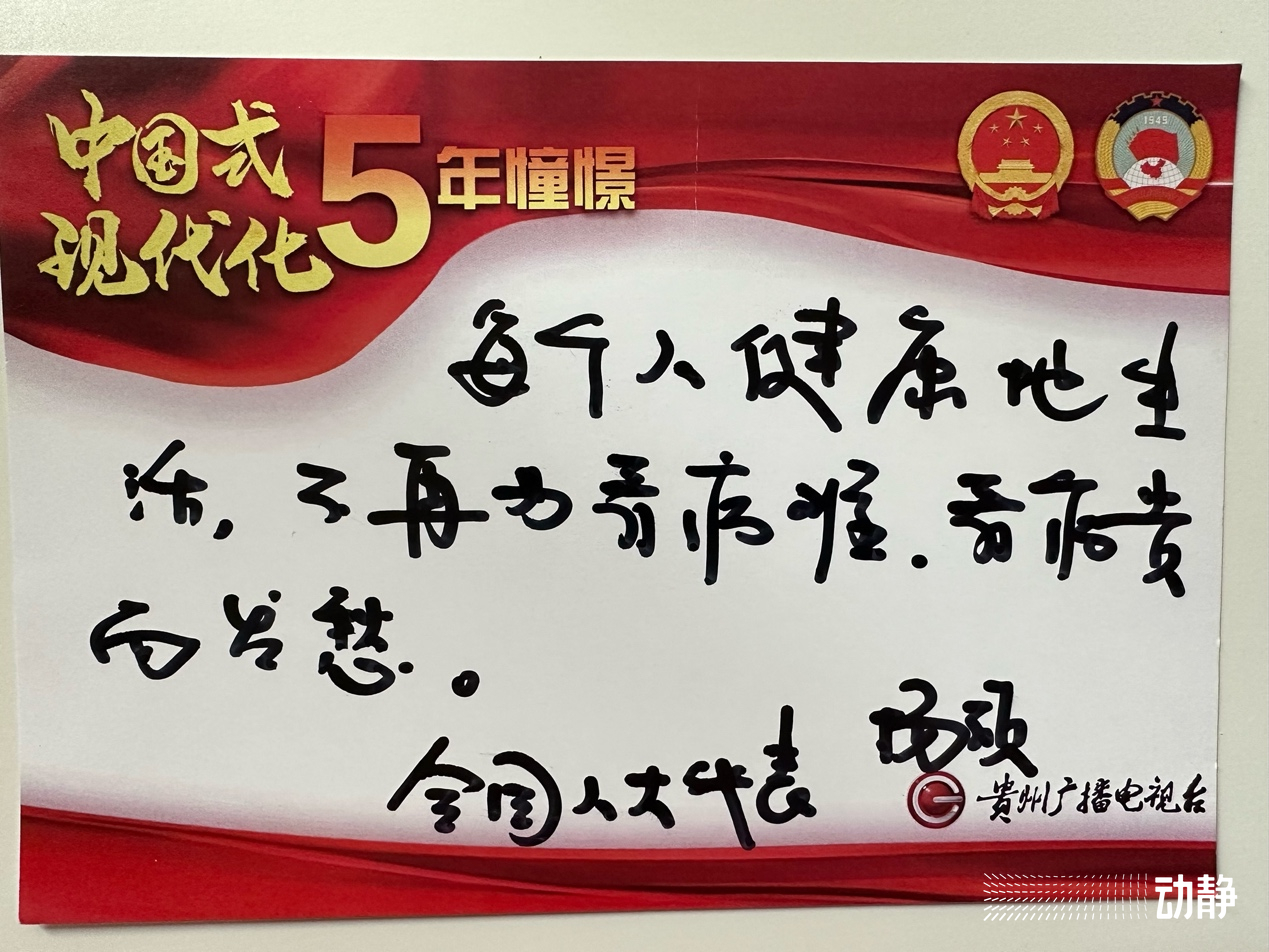 中国式
现代化
5年憧憬
1949
每个人健康地生
活,不再为看病难.看病贵
而发愁。
杨硕
全国人大代表
贵州广播电视台
动静